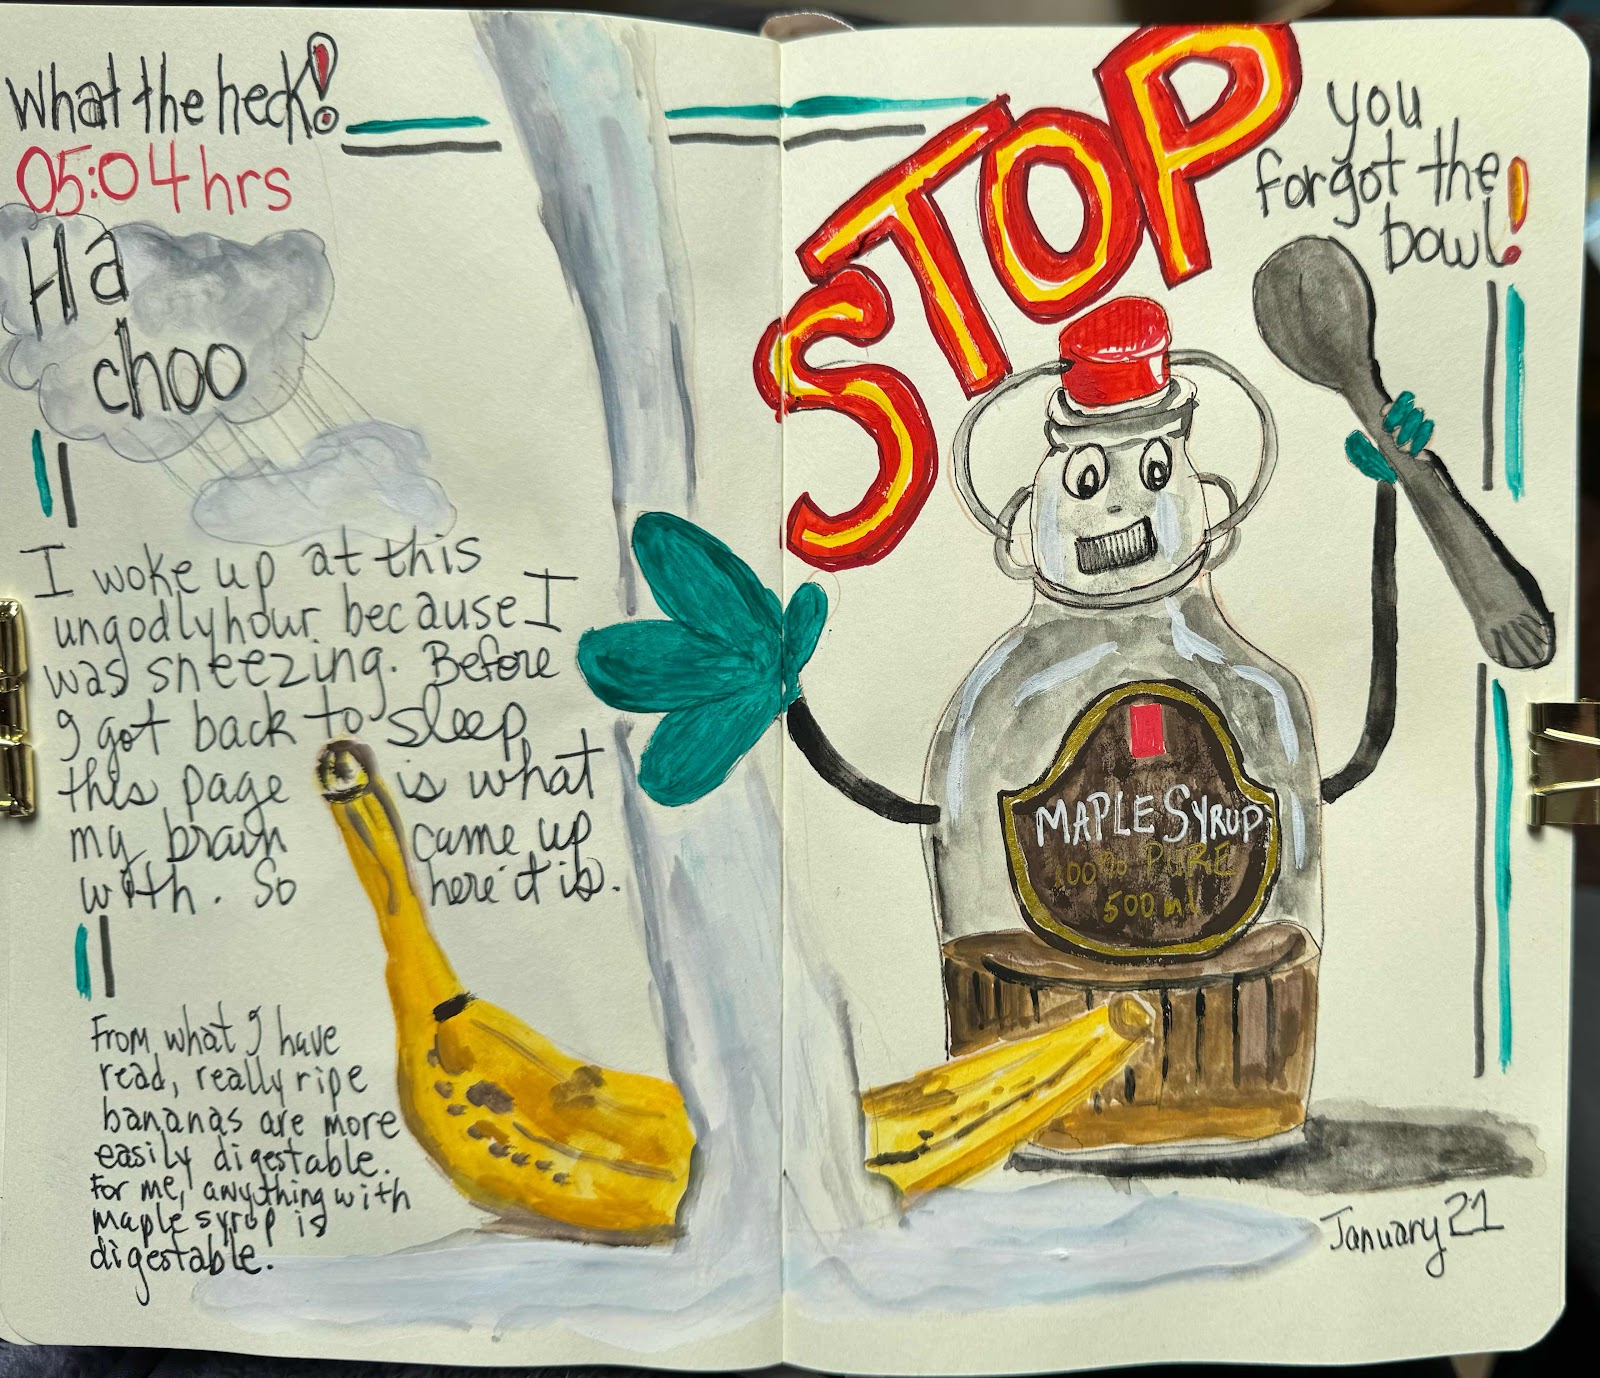 What the heck!
05:04 hrs
Ha
choo
I woke up at this
ungodly hour because I
was sneezing. Before
I got back to sleep
this page is what
my brain came up
with. So here it is.
From what I have
read, really ripe
bananas are more
easily digestable.
For me, anything with
maple syrop is
digestable.
STOP
you
forgot the
bowl!
MAPLE SYRUP
100% PURE
500 ml
January 21